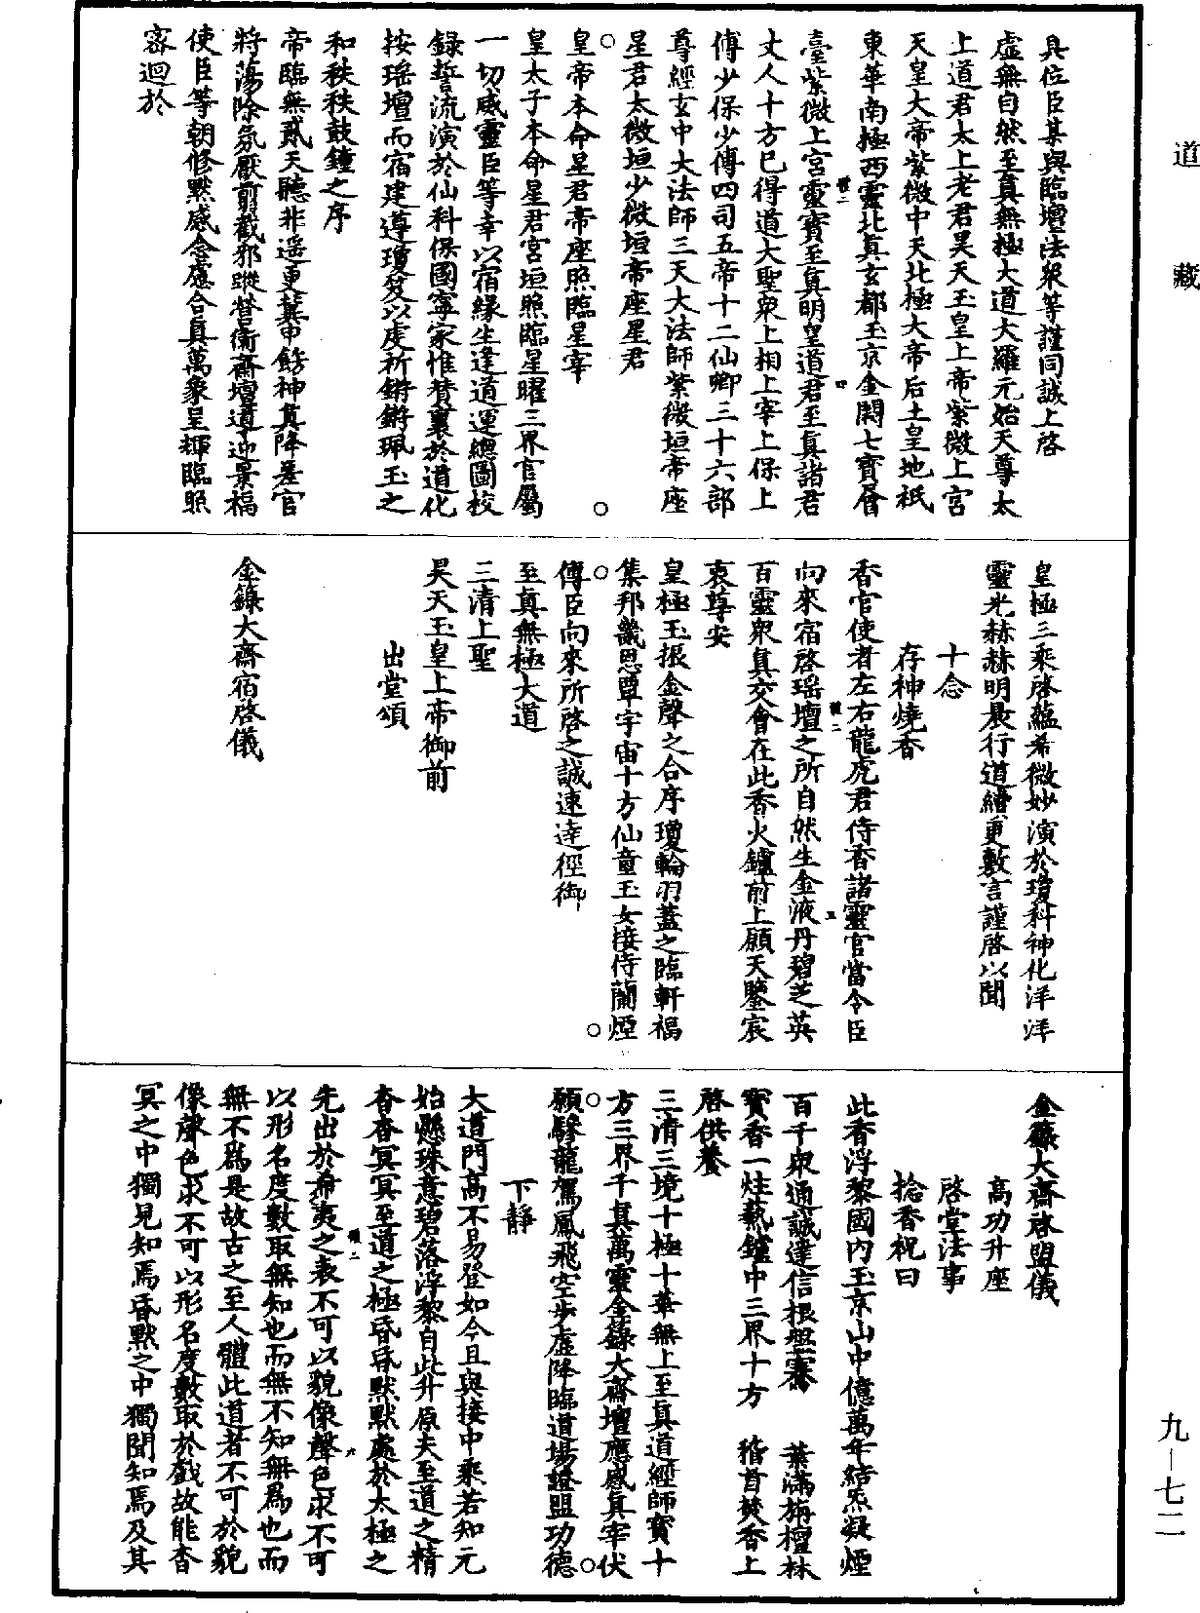 道藏
具位臣某與臨壇法衆等謹同誠上啓
虛無自然至真無極大道大羅元始天尊太
上道君太上老君昊天玉皇上帝紫微上宮
天皇大帝紫微中天北極大帝后土皇地祇
東華南極西靈北真玄都玉京金闕七寶層
臺紫微上宮靈寶至真明皇道君至真諸君
丈人十方已得道大聖衆上相上宰上保上
傅少保少傅四司五帝十二仙卿三十六部
尊經玄中大法師三天大法師紫微垣帝座
星君太微垣少微垣帝座星君
○
皇帝本命星君帝座照臨星宰
○
皇太子本命星君宮垣照臨星曜三界官屬
一切威靈臣等幸以宿緣生逢道運總圖校
錄誓流演於仙科保國寧家惟贊襄於道化
按瑤壇而宿建遵瓊笈以虔祈鏘鏘珮玉之
和秩秩鼓鐘之序
帝臨無貳天聽非遥更冀申餝神真降差官
將蕩除氛厭剪截邪蹤督衛齋壇導迎景福
使臣等朝修黙感念慮合真萬象呈輝臨照
宻迴於
皇極三乘啓蘊希微妙演於瓊科神化洋洋
靈光赫赫明晨行道續更敷言謹啓以聞
十念
存神燒香
香官使者左右龍虎君侍香諸靈官當令臣
向來宿啓瑶壇之所自然生金液丹碧芝英
百靈衆真交會在此香火鑪前上願天鑒宸
衷尊安
皇極玉振金聲之合序瓊輪羽蓋之臨軒福
集邦畿恩覃宇宙十方仙童玉女接侍蘭煙
○ ○
傳臣向來所啓之誠速達徑御
至真無極大道
三清上聖
昊天玉皇上帝御前
出堂頌
金籙大齋宿啓儀
金籙大齋啓盟儀
高功升座
啓堂法事
捻香祝曰
此香浮黎國内玉京山中億萬年結炁凝煙
百千衆通誠達信根盤 葉滿栴檀林
寶香一炷爇鑪中三界十方 稽首焚香上
啓供養
三清三境十極十華無上至真道經師寶十
方三界千真萬靈金籙大齋壇應感真宰伏
○ ○
願驂龍駕鳳飛空步虛降臨道場證盟功德
下靜
大道門高不易登如今且與接中乘若知元
始懸珠意碧落浮黎自此升原夫至道之精
杳杳冥冥至道之極昏昏默默處於太極之
先出於希夷之表不可以貌像聲色求不可
以形名度數取無知也而無不知無爲也而
無不爲是故古之至人體此道者不可於貌
像聲色求不可以形名度數取於戲故能杳
冥之中獨見知焉昏默之中獨聞知焉及其
九－七二